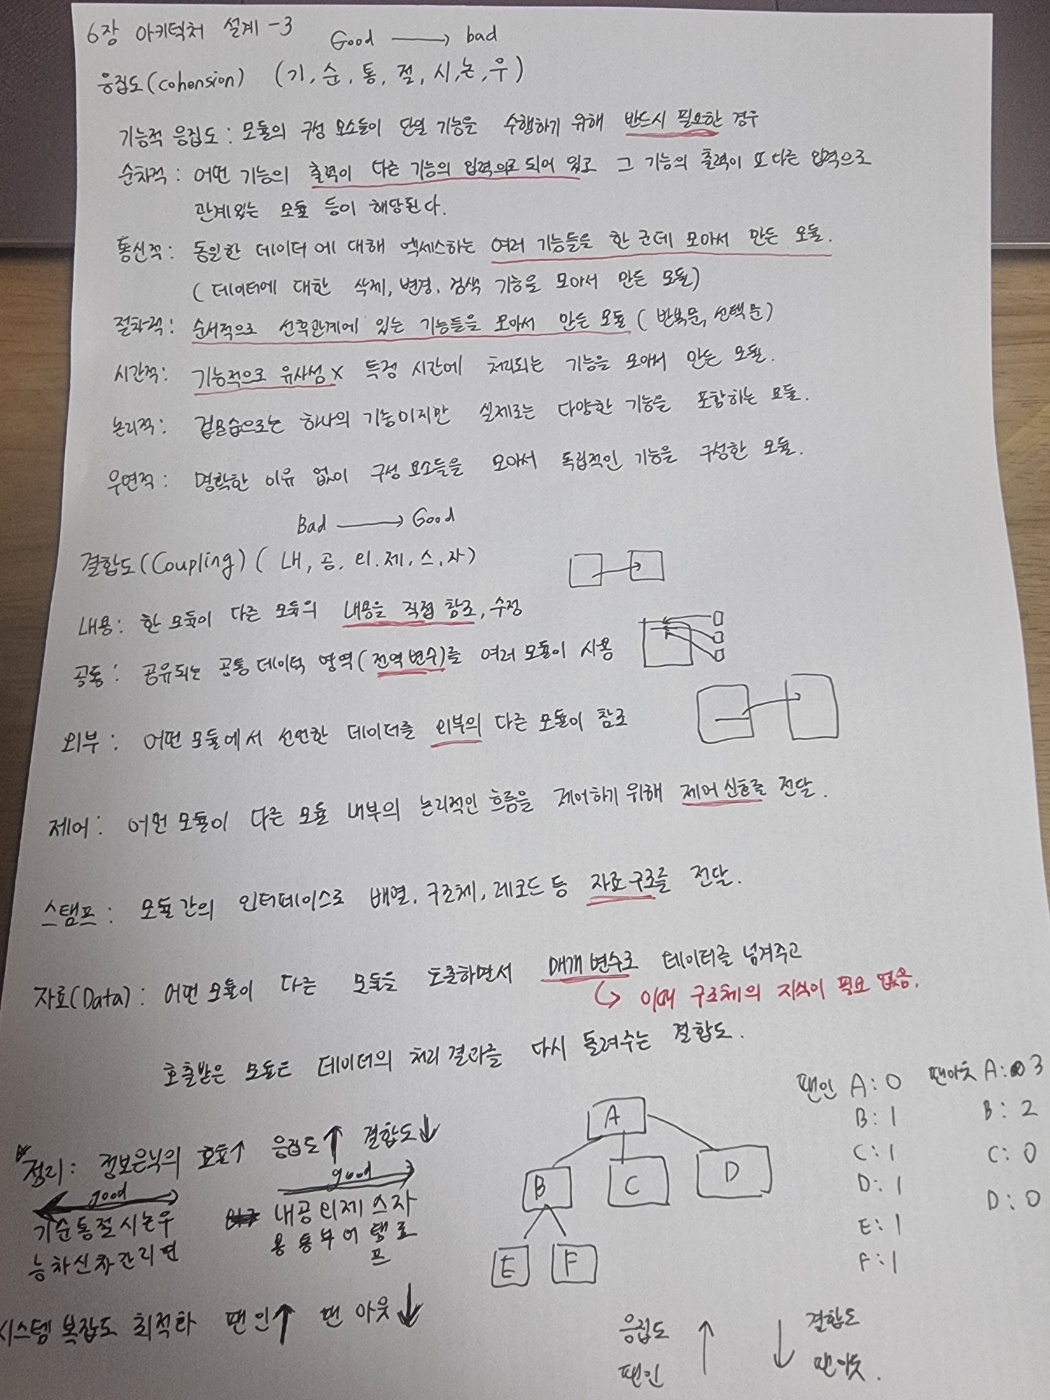 6장 아키텍처 설계 -3
Good → bad
응집도(cohension) (기, 순, 통, 절, 시, 논, 우)
기능적 응집도 : 모듈의 구성 요소들이 단일 기능을 수행하기 위해 반드시 필요한 경우
순차적 : 어떤 기능의 출력이 다른 기능의 입력으로 되어 있고 그 기능의 출력이 또 다른 입력으로
관계있는 모듈 등이 해당된다.
통신적 : 동일한 데이터에 대해 엑세스하는 여러 기능들을 한 군데 모아서 만든 모듈.
( 데이터에 대한 삭제, 변경, 검색 기능을 모아서 만든 모듈)
절차적 : 순서적으로 선후관계에 있는 기능들을 모아서 만든 모듈 ( 반복문, 선택문)
시간적 : 기능적으로 유사성 X 특정 시간에 처리되는 기능을 모아서 만든 모듈.
논리적 : 겉모습으로는 하나의 기능이지만 실제로는 다양한 기능을 포함하는 모듈.
우연적 : 명확한 이유 없이 구성 요소들을 모아서 독립적인 기능을 구성한 모듈.
Bad → Good
결합도(Coupling) ( 내, 공, 외, 제, 스, 자)
내용 : 한 모듈이 다른 모듈의 내용을 직접 참조, 수정
공통 : 공유되는 공통 데이터 영역(전역 변수)를 여러 모듈이 사용
외부 : 어떤 모듈에서 선언한 데이터를 외부의 다른 모듈이 참조
제어 : 어떤 모듈이 다른 모듈 내부의 논리적인 흐름을 제어하기 위해 제어 신호를 전달.
스탬프 : 모듈간의 인터페이스로 배열, 구조체, 레코드 등 자료 구조를 전달.
자료(Data) : 어떤 모듈이 다른 모듈을 호출하면서 매개 변수로 데이터를 넘겨주고
이때 구조체의 지식이 필요 없음.
호출받은 모듈은 데이터의 처리 결과를 다시 돌려주는 결합도.
정리 : 정보은닉의 효율↑ 응집도↑ 결합도↓
good
기순통절시논우
능차신차간리연
적
good
내공외제스자
용통부어탬료
프
시스템 복잡도 최적화 팬인↑ 팬 아웃↓
A
B C D
E F
팬인 A: 0 팬아웃 A: 3
B: 1 B: 2
C: 1 C: 0
D: 1 D: 0
E: 1
F: 1
응집도 ↑ ↓ 결합도
팬인 팬아웃.